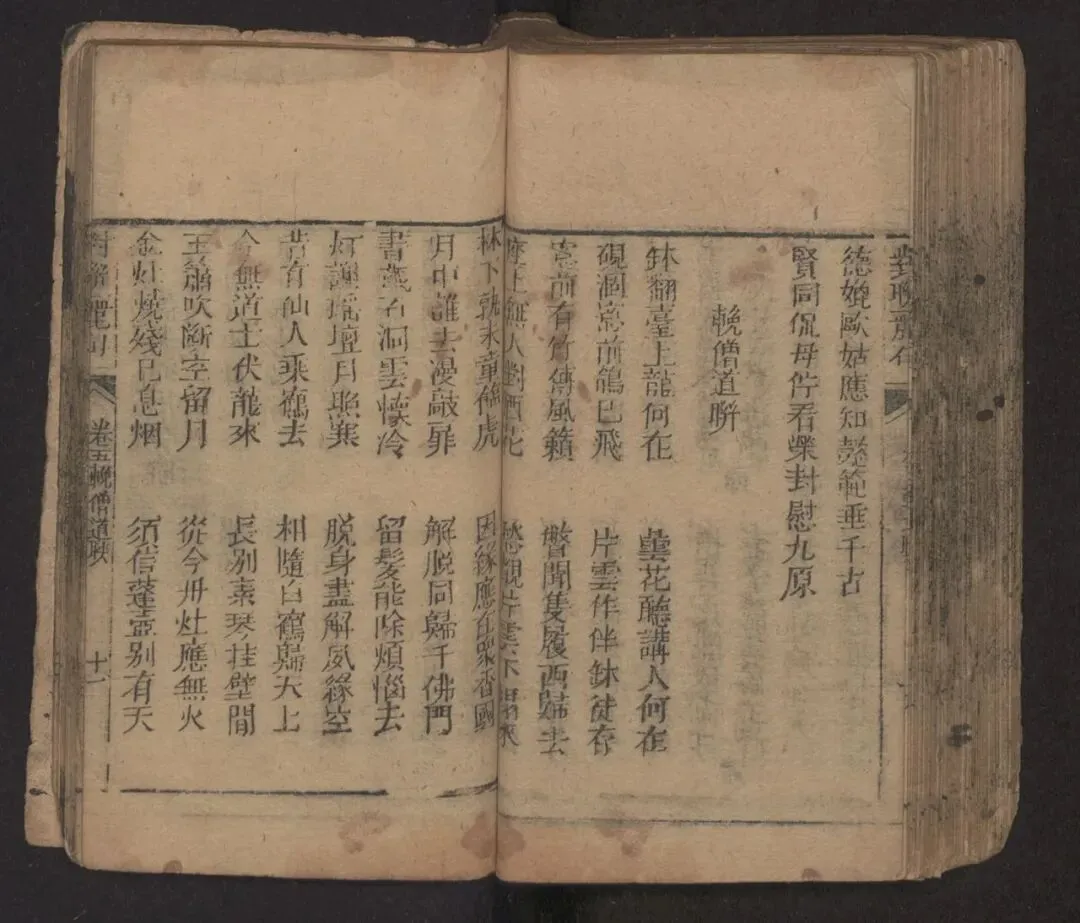 德媲歐姑應知懿範垂千古
賢同侃母佇看榮封慰九原
輓僧道聨
鉢翻臺上龍何在 曇花聽講人何在
硯涸窓前鴿已飛 片雲作伴鉢徒存
窓前有竹傳風籟 瞥聞隻履西歸去
座上無人對雨花 愁覩片雲下
林下孰來童俻虎 因緣應在衆香國
月中誰去漫敲扉 解脱同歸千佛門
書藏石洞雲懷冷 留髮能除煩惱去
灯謝瑶壇月照寒 脱身盡解夙緣空
昔有仙人乘鶴去 相隨白鶴歸天上
今無道士伏龍來 長别素琴挂壁間
玉簫吹斷空留月 從今丹灶應無火
金灶燒殘已息烟 須信蓬壺别有天
卷五 輓僧道聨 十一